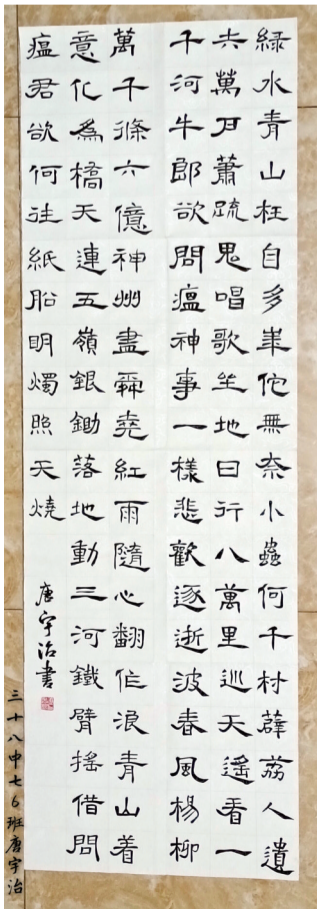 綠水青山枉自多崋佗無奈小蟲何千村薜荔人遺
矢萬戶蕭疏鬼唱歌坐地日行八萬里巡天遙看一
千河牛郎欲問瘟神事一樣悲歡逐逝波春風楊柳
萬千條六億神州盡舜堯紅雨隨心翻作浪青山着
意化爲橋天連五嶺銀鋤落地動三河鐵臂搖借問
瘟君欲何往紙船明燭照天燒
唐宇治書
三十八中七6班唐宇治